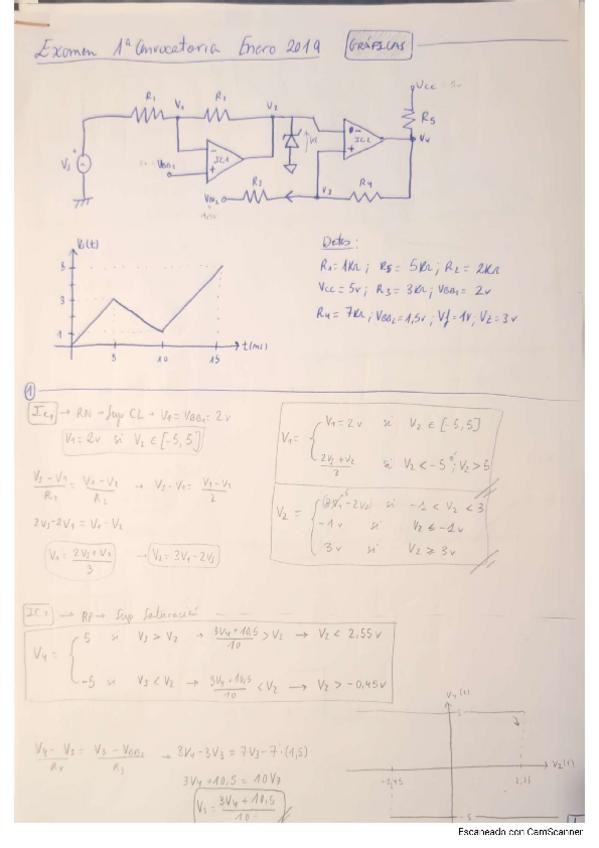 Examen 1ª Convocatoria Enero 2019 GRÁFICAS
Vcc = 5v
R1 V1 R2 V2
R5
V4
IC1 IC2
VBB1
Vs
VBB2 R3 V3 R4
Vs(t)
5
3
1
5 10 15 t(ms)
Datos:
R1=1KΩ; R5= 5KΩ; R2= 2KΩ
Vcc= 5v; R3= 3KΩ; VBB1= 2v
R4= 7KΩ; VBB2=1,5v; Vf=1v, Vz=3v
1
IC1 → RN → Sup CL → V1=VBB1= 2v
V1=2v si V2 ∈ [-5,5]
V1=2v si V2 ∈ [-5,5]
V1=
si V2 < -5 ; V2 > 5
2Vs-2V1 = V1-V2
V1= 2Vs+V2 / 3 → V2= 3V1-2Vs
V2 = si -1 < V2 < 3
-1v si V2 ≤ -1v
3v si V2 ≥ 3v
IC2 → RP → Sup Saturación
5 si V3 > V2 → 3V4+10,5 / 10 > V2 → V2 < 2,55v
V4=
-5 si V3 < V2 → 3V4+10,5 / 10 < V2 → V2 > -0,45v
V4-V3 / R4 = V3-VBB2 / R3 → 3V4-3V3 = 7V3-7·(1,5)
3V4+10,5 = 10V3
V3= 3V4+10,5 / 10
V4(t)
5
V2(t)
-5
Escaneado con CamScanner